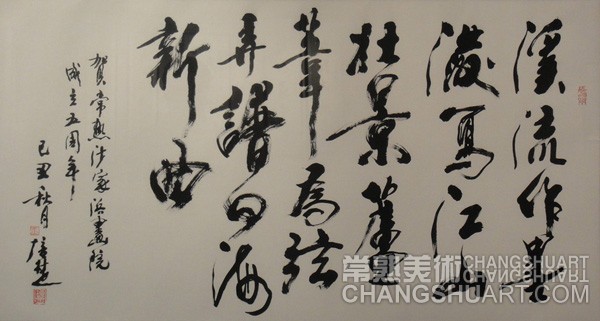 溪流作墨
潑寫江山
壯景蘆
葦為弦
弄譜海
新曲
賀常熟沙家浜畫院
成立五周年!
己丑秋月
常熟美術 CHANGSHUART
CHANGSHUART.COM